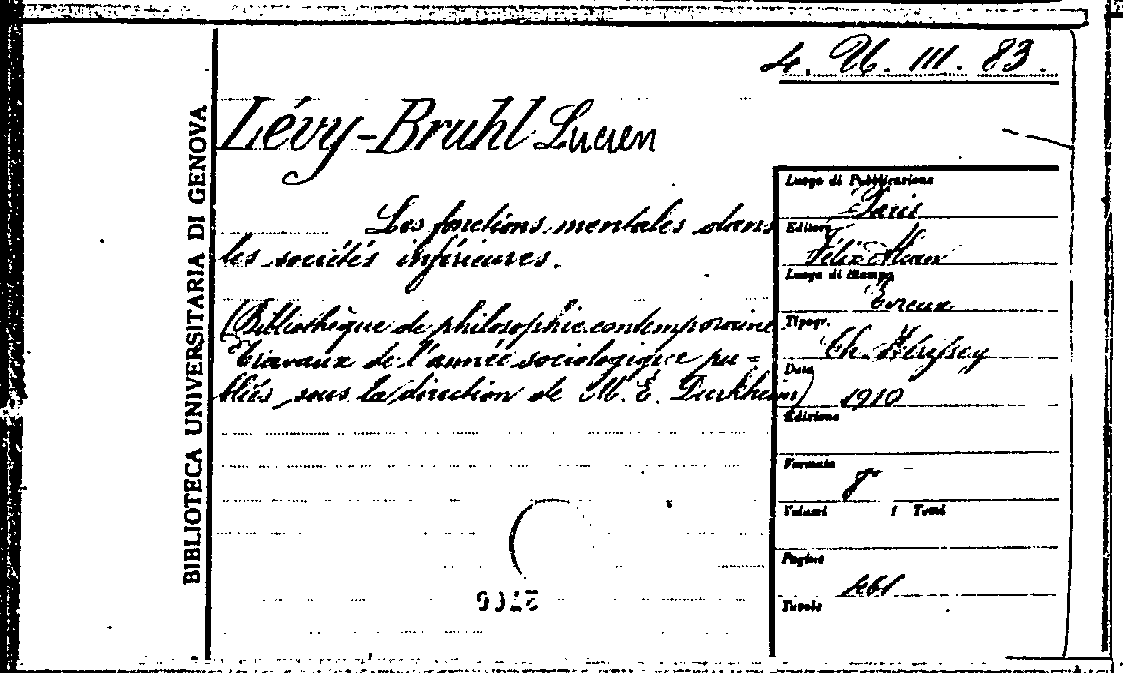 4. U. III. 83.
BIBLIOTECA UNIVERSITARIA DI GENOVA
Lévy-Bruhl Lucien
Les fonctions mentales dans
les sociétés inférieures.
(Bibliothèque de philosophie contemporaine
Travaux de l'année sociologique pu=
bliés sous la direction de M. E. Durkheim)
Luogo di Pubblicazione
Paris
Editore
Félix Alcan
Luogo di Stampa
Evreux
Tipogr.
Ch. Hérissey
Data
1910
Edizione
Formato
8°
Volumi / Tomi
Pagine
461
Tavole